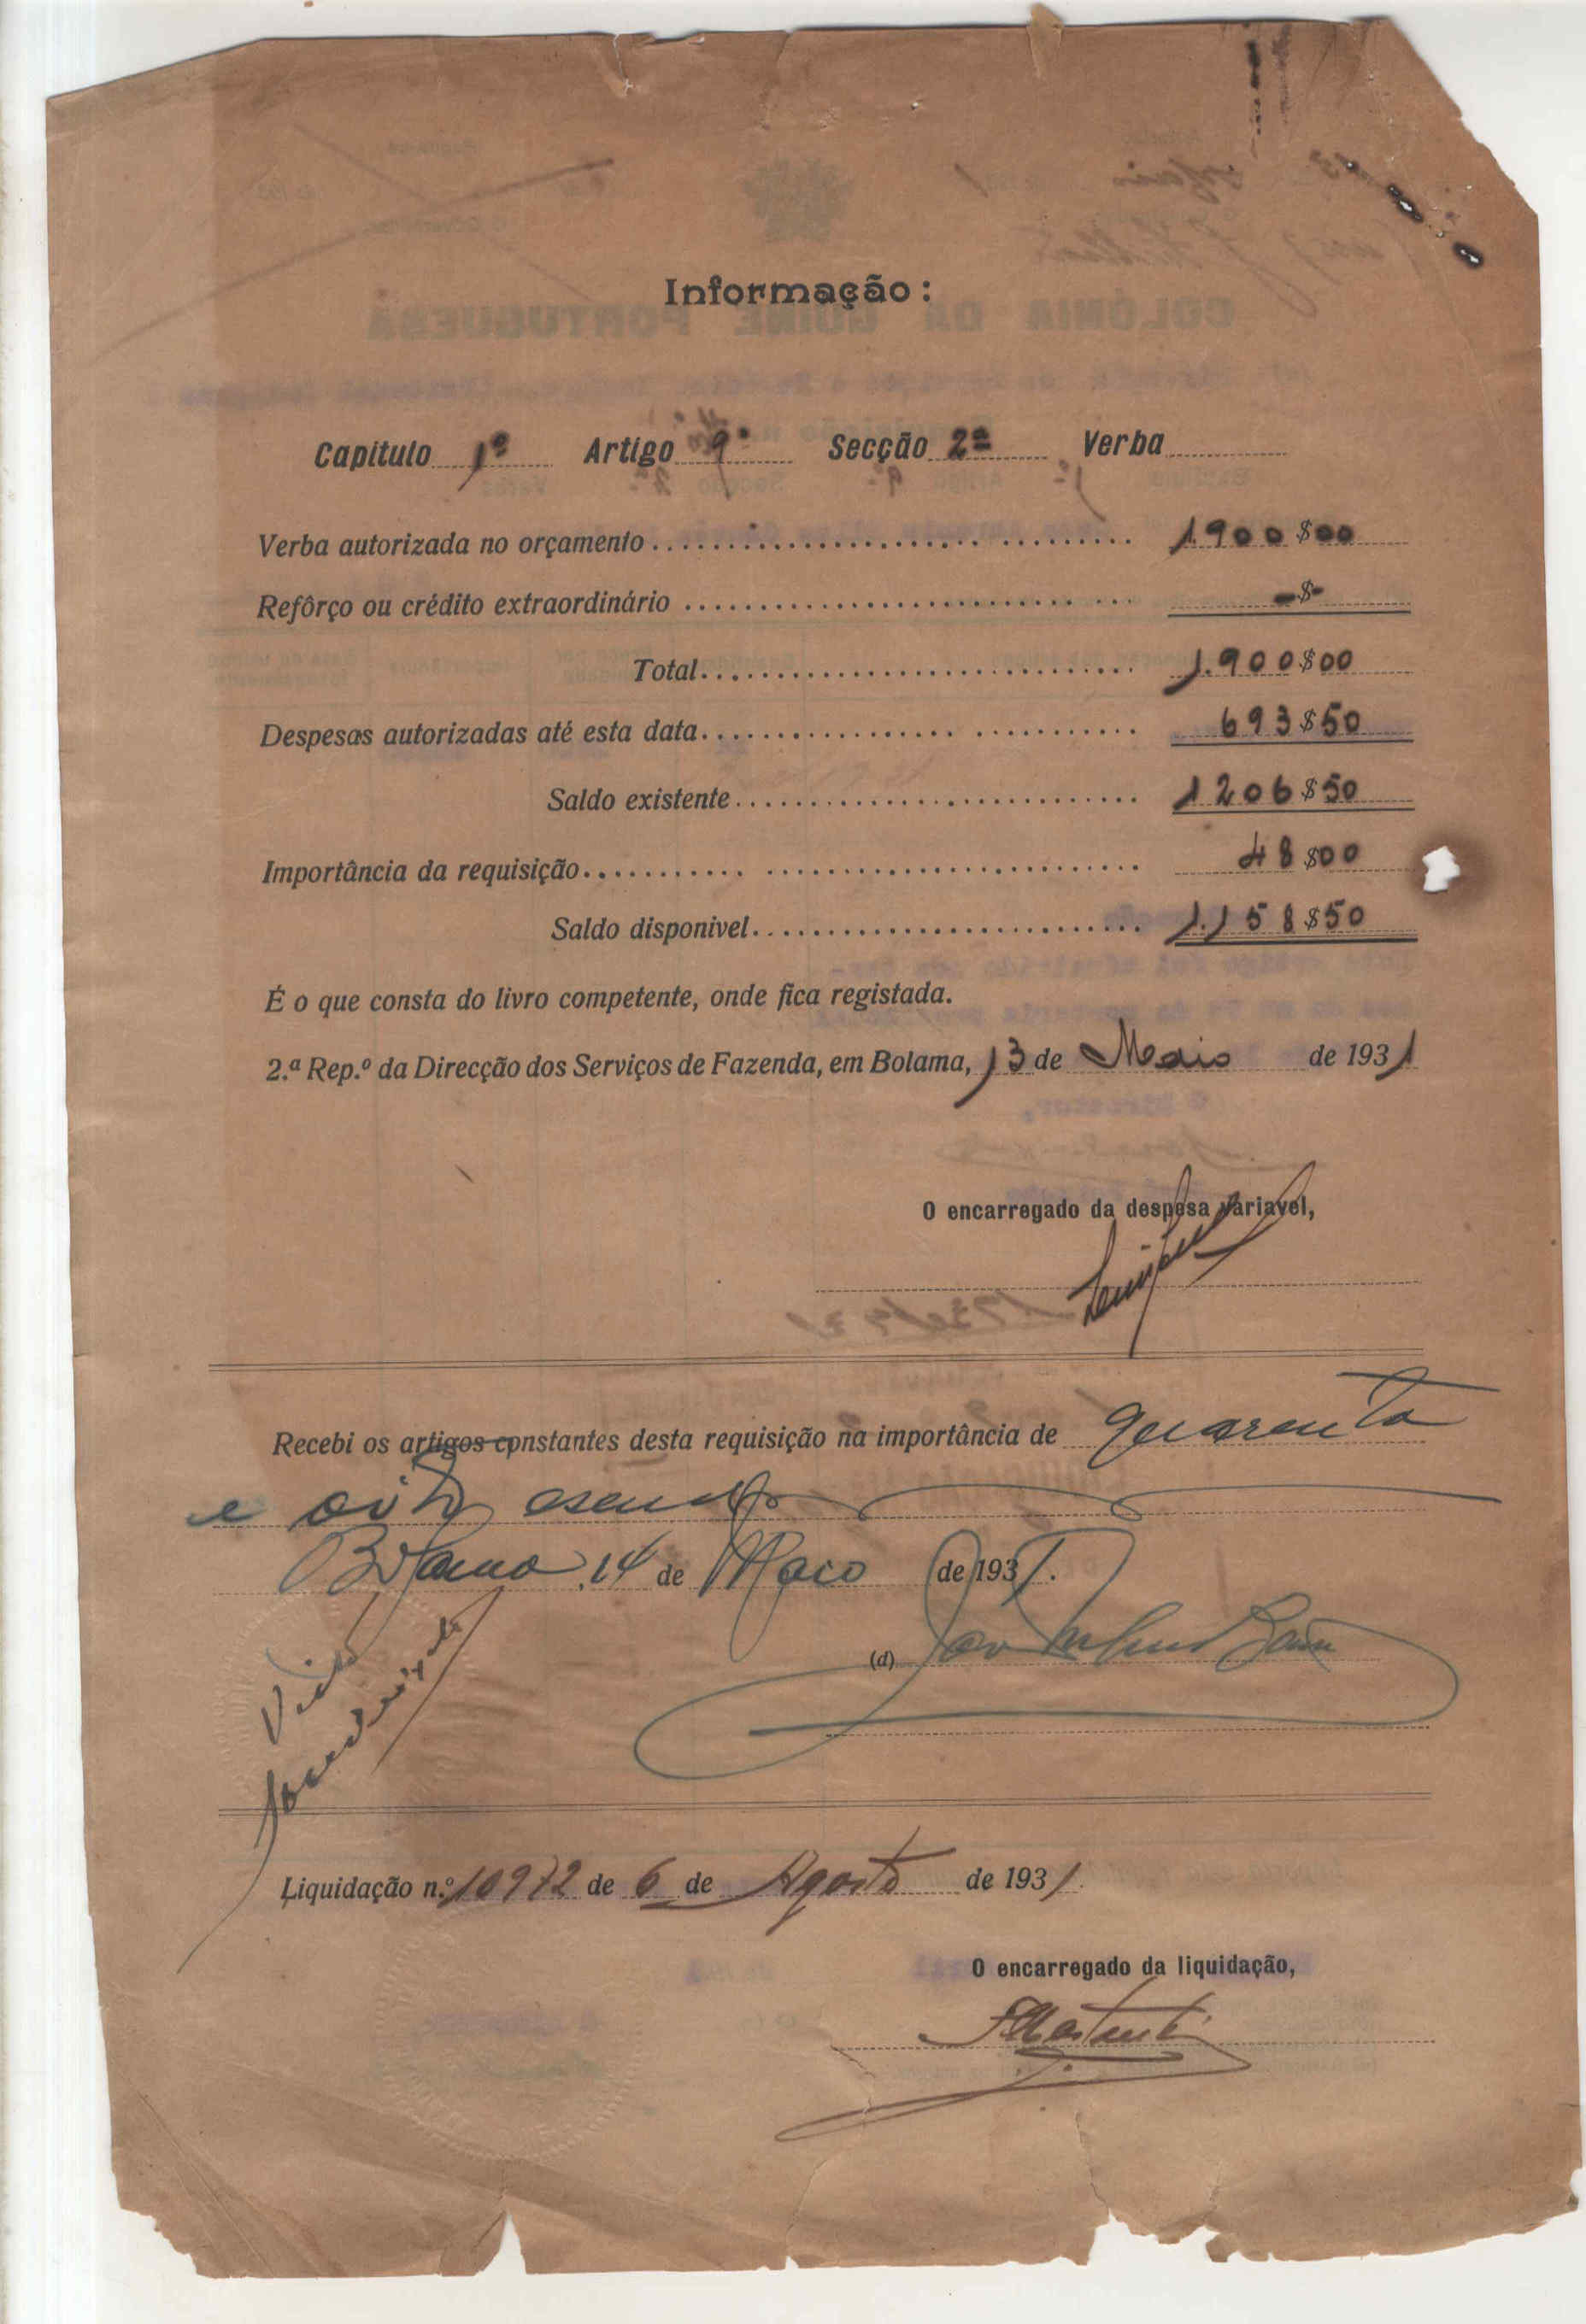 Informação:
Capitulo 1º Artigo 9º Secção 2ª Verba
Verba autorizada no orçamento 1900$00
Refôrço ou crédito extraordinário -$-
Total 1.900$00
Despesas autorizadas até esta data 693$50
Saldo existente 1206$50
Importância da requisição 48$00
Saldo disponivel 1.158$50
É o que consta do livro competente, onde fica registada.
2.ª Rep.º da Direcção dos Serviços de Fazenda, em Bolama, 13 de Maio de 1931
O encarregado da despesa variavel,
Recebi os artigos constantes desta requisição na importância de quarenta
e oito escudos
Bolama, 14 de Maio de 1931.
(d)
Visto
Liquidação n.º 10972 de 6 de Agosto de 1931.
O encarregado da liquidação,